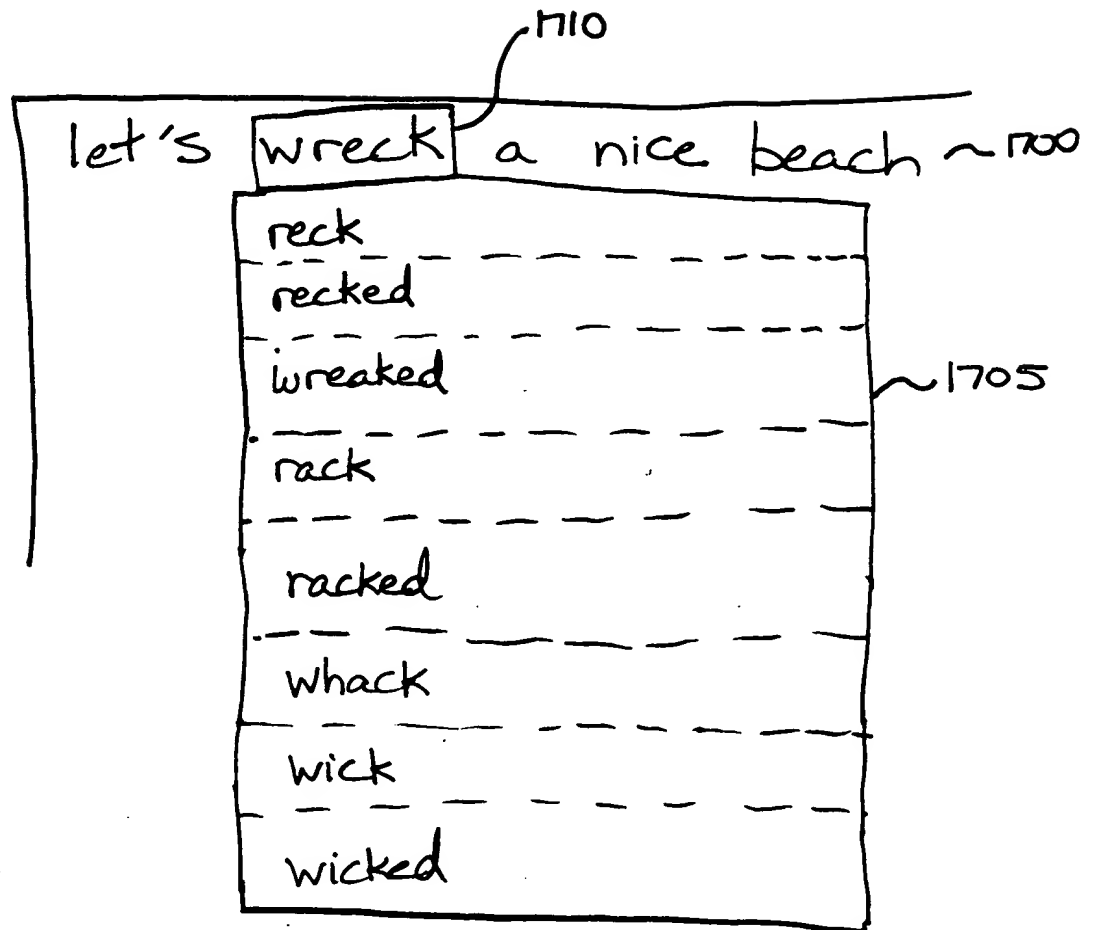 1710
let's wreck a nice beach ~1700
reck
recked
wreaked
1705
rack
racked
whack
wick
wicked